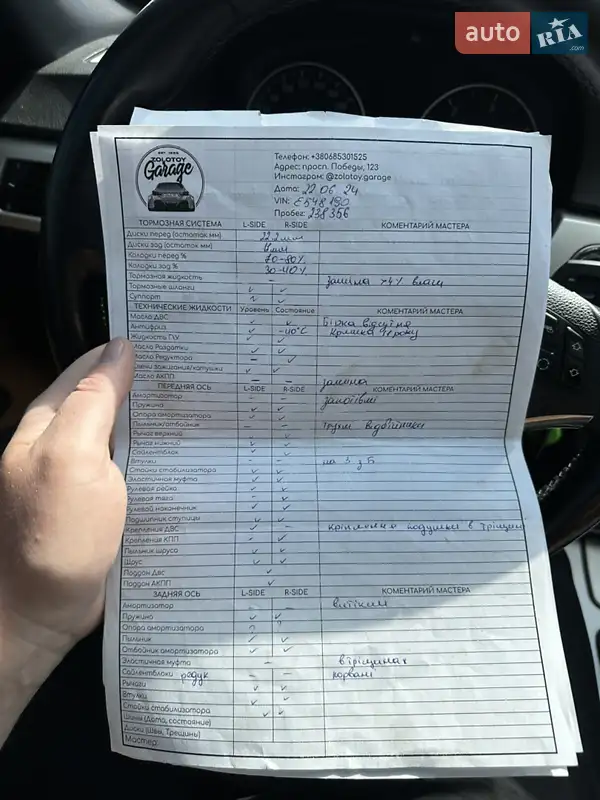 auto RIA .com
EST. 1996
ZOLOTOY
Garage
Телефон: +380685301525
Адрес: просп. Победы, 123
Инстаграм: @zolotoy.garage
Дата: 22.06 24
VIN: E548190
Пробег: 238356
ТОРМОЗНАЯ СИСТЕМА L-SIDE R-SIDE КОМЕНТАРИЙ МАСТЕРА
Диски перед (остаток мм) 22.2мм
Диски зад (остаток мм) мм
Колодки перед % 70-80%
Колодки зад % 30-40%
Тормозная жидкость - заміна >4% влаги
Тормозные шланги ✓ ✓
Суппорт ✓
ТЕХНИЧЕСКИЕ ЖИДКОСТИ Уровень Состояние КОМЕНТАРИЙ МАСТЕРА
Масло ДВС ✓ ✓ Бірка відсутня
Антифриз ✓ -40°C
Жидкость ГУ ✓ ✓
Масло Раздатки ✓ ✓
Масло Редуктора - ✓
Свечи зажигания/катушки ✓ ✓
Масло АКПП - - заміна
ПЕРЕДНЯЯ ОСЬ L-SIDE R-SIDE КОМЕНТАРИЙ МАСТЕРА
Амортизатор - - запотівші
Пружина ✓ ✓
Опора амортизатора ✓ ✓
Пыльник/отбойник - - відбійники
Рычаг верхний ✓
Рычаг нижний ✓ ✓
Сайлентблок ✓ ✓
Втулки - - на
Стойки стабилизатора ✓ ✓
Эластичная муфта ✓ ✓
Рулевая рейка ✓
Рулевая тяга ✓
Рулевой наконечник ✓ ✓
Подшипник ступицы ✓ ✓
Крепления ДВС ✓ - кріплення подушки в тріщинах
Крепление КПП ✓
Пыльник шруса ✓ ✓
Шрус ✓ ✓
Поддон Двс ✓
Поддон АКПП ✓
ЗАДНЯЯ ОСЬ L-SIDE R-SIDE КОМЕНТАРИЙ МАСТЕРА
Амортизатор - -
Пружина ✓ ✓
Опора амортизатора ? ?
Пыльник ✓ ✓
Отбойник амортизатора ✓ ✓
Эластичная муфта - в тріщинах
Сайлентблоки редук - - порвані
Рычаги ✓ ✓
Втулки ✓ ✓
Стойки стабилизатора ✓ ✓
Шины (Дата, состояние)
Диски (Швы, Трещины)
Мастер